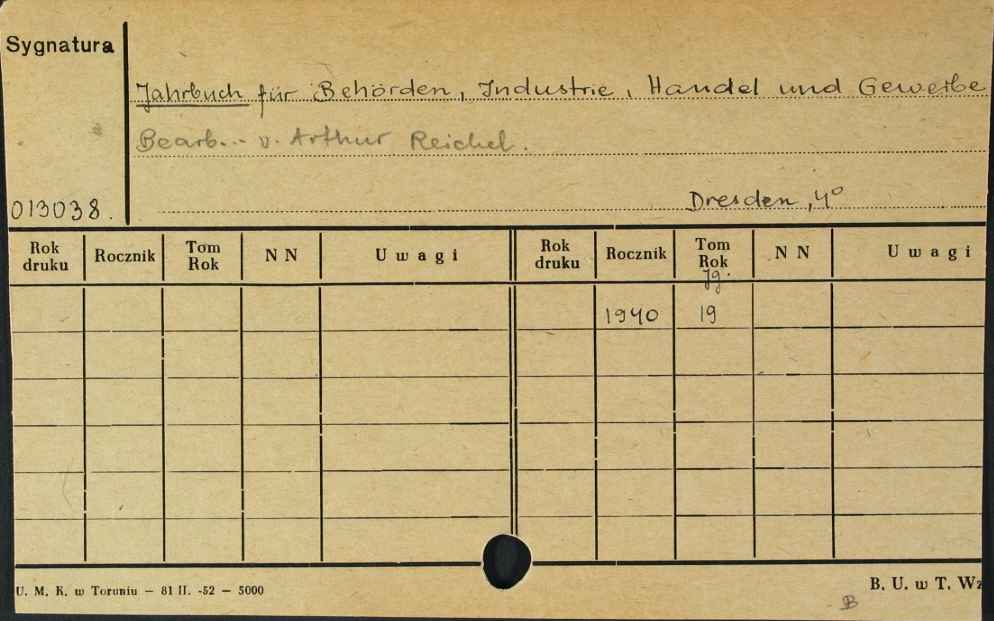 Sygnatura
Jahrbuch für Behörden, Industrie, Handel und Gewerbe
Bearb... v. Arthur Reichel.
013038.
Dresden, 4°
Rok druku Rocznik Tom Rok N N Uwagi Rok druku Rocznik Tom Rok N N Uwagi
Jg.
1940 19
U. M. K. w Toruniu — 81 II. -52 — 5000
B. U. w T. Wz
B